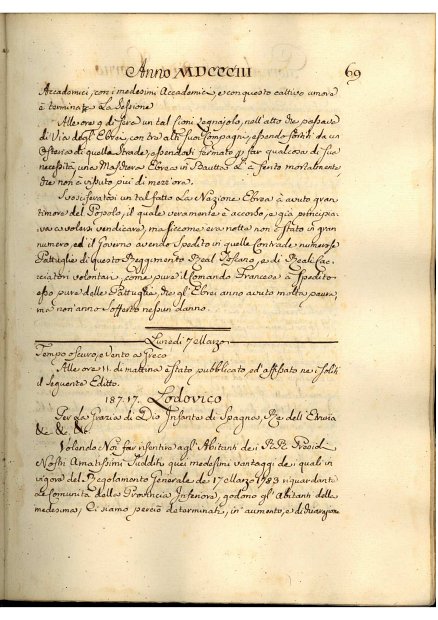 Anno MDCCCIII 69
Accademici, con i medesimi Accademici, e con questo cattivo umore
è terminata La Sessione
Alle ore 9 di sera un tal Fioni Legnajolo, nell'atto che passava
di Via degl' Ebrei, con tre altri suoi Compagni, essendo sortiti da un
Osteria di quelle Strade, essendosi fermato p far qualcosa di sue
necessità, una Maschera Ebrea in Bautta L' à ferito mortalmente,
che non è vissuto piu' di mezz'ora.
Insospettita un tal fatto La Nazione Ebrea à avuto gran
timore del Popolo, il quale veramente è accorso, e già principia-
va a volersi vendicare, ma siccome era notte non è stato in gran
numero, ed il Governo avendo spedito in quelle Contrade numerose
Pattuglie di questo Reggimento Real Toscano, e di Reali Cac-
ciatori volontari, come pure il Comando Francese à spedito
esso pure delle Pattuglie, che gl' Ebrei anno avuto molta paura,
ma non anno sofferto nessun danno.
Lunedì 7 Marzo
Tempo oscuro, e vento a Greco
Alle ore 11. di mattina è stato pubblicato ed affissato nei soliti
il seguente Editto.
187.17. Lodovico
Per La Grazia di Dio Infante di Spagna, Re dell' Etruria
&c &c &c
Volendo Noi far risentire agl' Abitanti dei RR. Presidi
Nostri Amatissimi Sudditi quei medesimi vantaggi dei quali in
vigore del Regolamento Generale de' 17 Marzo 1783 riguardante
Le Comunità della Provincia Inferiore, godono gl' Abitanti delle
medesime, Ci siamo perciò determinati, in aumento, e dichiarazione